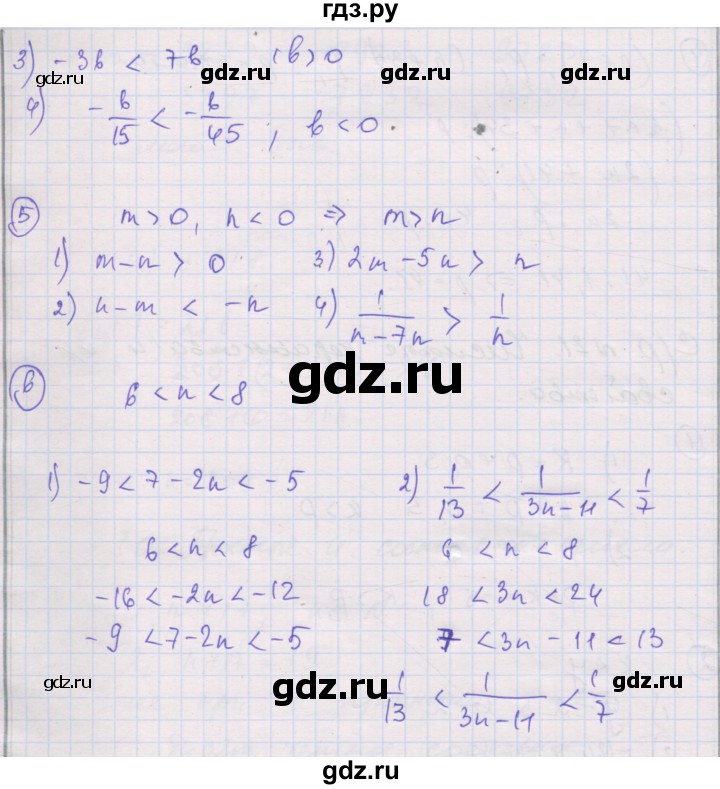 гдз.ру
3) -3b < 7b (b > 0
gdz.ru gdz.ru gdz.ru
4) -b/15 < -b/45 ; b < 0
5 m > 0, n < 0 ⇒ m > n
1) m - n > 0 3) 2m - 5n > n
2) n - m < -n 4) 1/(m - 7n) > 1/n
gdz.ru
6 6 < n < 8
1) -9 < 7 - 2n < -5 2) 1/13 < 1/(3n - 11) < 1/7
6 < n < 8 6 < n < 8
-16 < -2n < -12 18 < 3n < 24
-9 < 7 - 2n < -5 7 < 3n - 11 < 13
gdz.ru gdz.ru gdz.ru
1/13 < 1/(3n - 11) < 1/7
gdz.ru